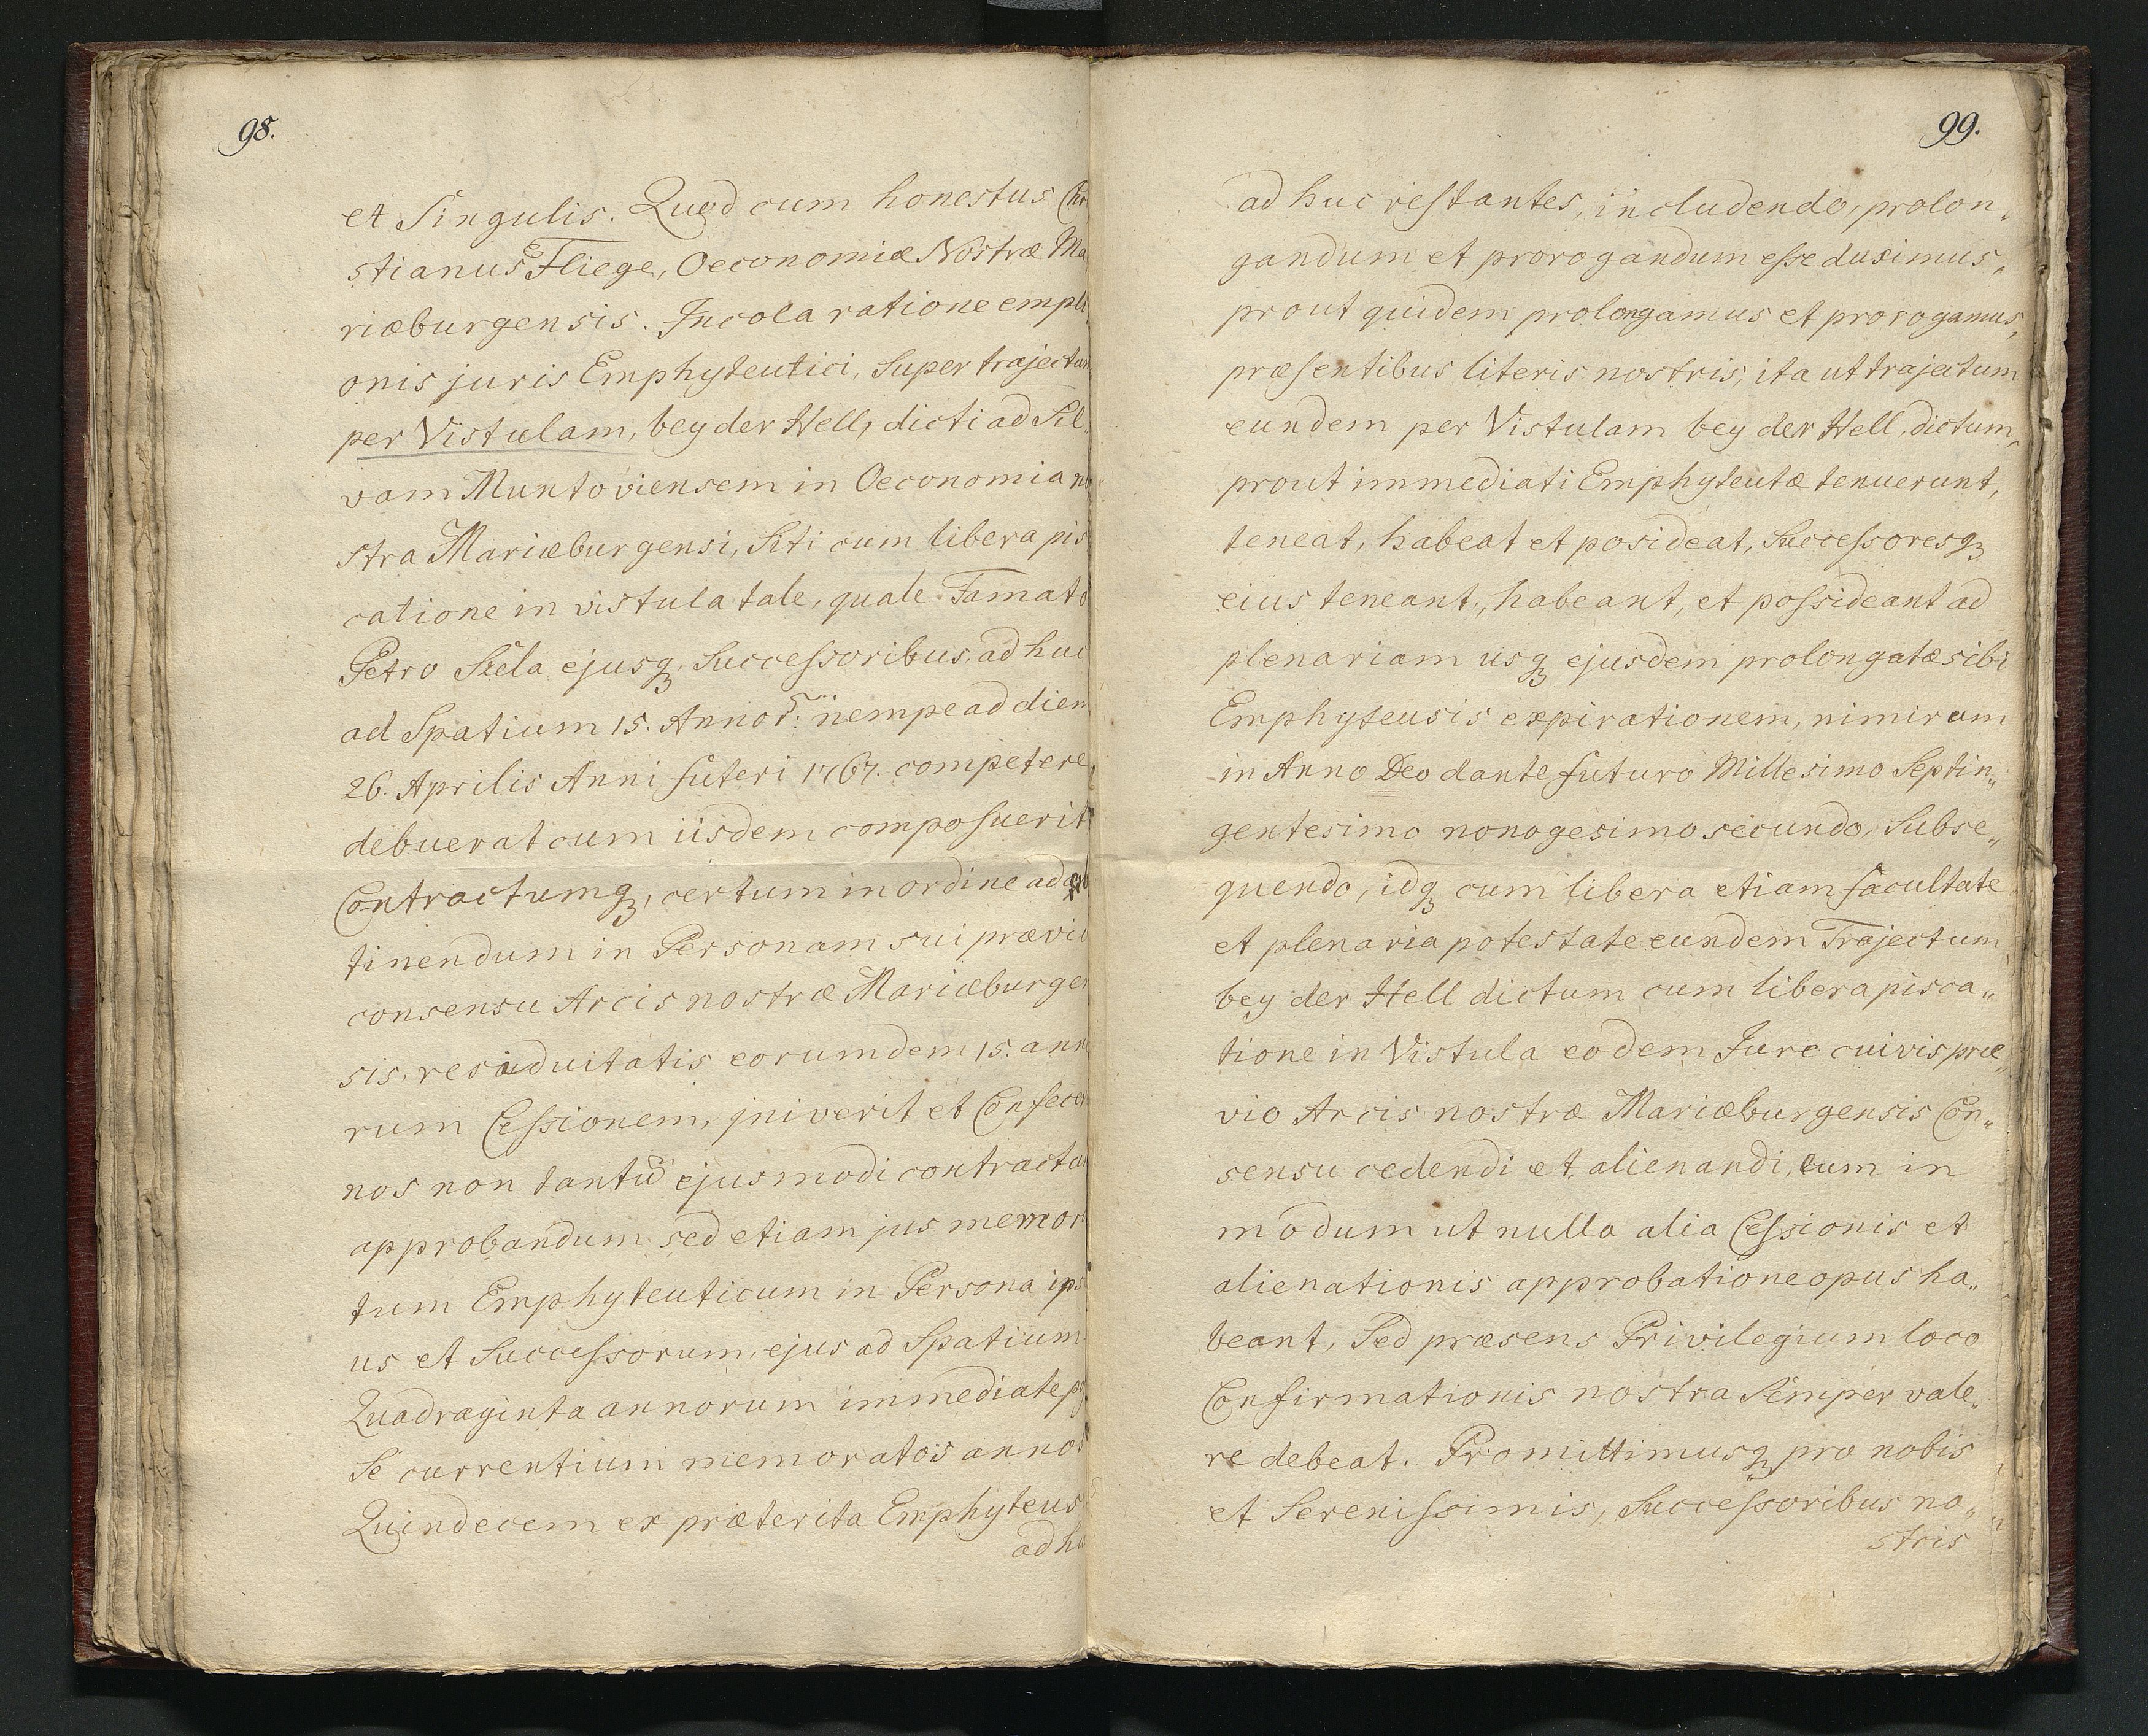 98.
et Singulis. Quod cum honestus Chri
stianus Fliege, Oeconomiæ Nostræ Ma
riæburgensis. Incola ratione empti
onis juris Emphyteutici, Super trajectum
per Vistulam, bey der Hell, dicti ad Sil
vam Muntoviensem in Oeconomia no
stra Mariæburgensi, Siti cum libera pis
catione in vistula tale, quale Famato
Petro Szela ejusq; Successoribus, ad huc
ad Spatium 15. Annor: nempe ad diem
26. Aprilis Anni futeri 1767. competere
debuerat cum iisdem composuerit
Contractumq; certum in ordine ad
tinendum in Personam sui prævio
consensu Arcis nostræ Mariæburgen
sis, residuitatis eorumdem 15. ann
rum Cessionem, jniverit et Confecer
nos non tantũ ejusmodi contractum
approbandum sed etiam jus memora
tum Emphyteuticum in Persona ipsi
us et Successorum, ejus ad Spatium
Quadraginta annorum immediate p
Se currentium memoratos annos
Quindecem ex præterita Emphyteus
ad hu
99.
ad huc restantes, includendo, prolon„
gandum et prorogandum esse duximus,
prout quidem prolongamus et prorogamus,
præsentibus literis nostris, ita ut trajectum
eundem per Vistulam bey der Hell, dictum,
prout immediati Emphyteutæ tenuerunt,
teneat, habeat et posideat, Successoresq;
eius teneant, habeant, et possideant ad
plenariam usq; ejusdem prolongatæ sibi
Emphyteusis expirationem, nimirum
in Anno Deo dante futuro Millesimo Septin„
gentesimo nonogesimo secundo, Subse„
quendo, idq; cum libera etiam facultate
et plenaria potestate eundem Trajectum
bey der Hell dictum cum libera pisca„
tione in Vistula eodem Jure cuivis præ„
vio Arcis nostræ Mariæburgensis Con„
sensu cedendi et alienandi, eum in
modum ut nulla alia Cessionis et
alienationis approbatione opus ha„
beant, Sed præsens Privilegium loco
Confirmationis nostra Semper vale„
re debeat. Promittimusq; pro nobis
et Serenissimis, Successoribus no„
stris